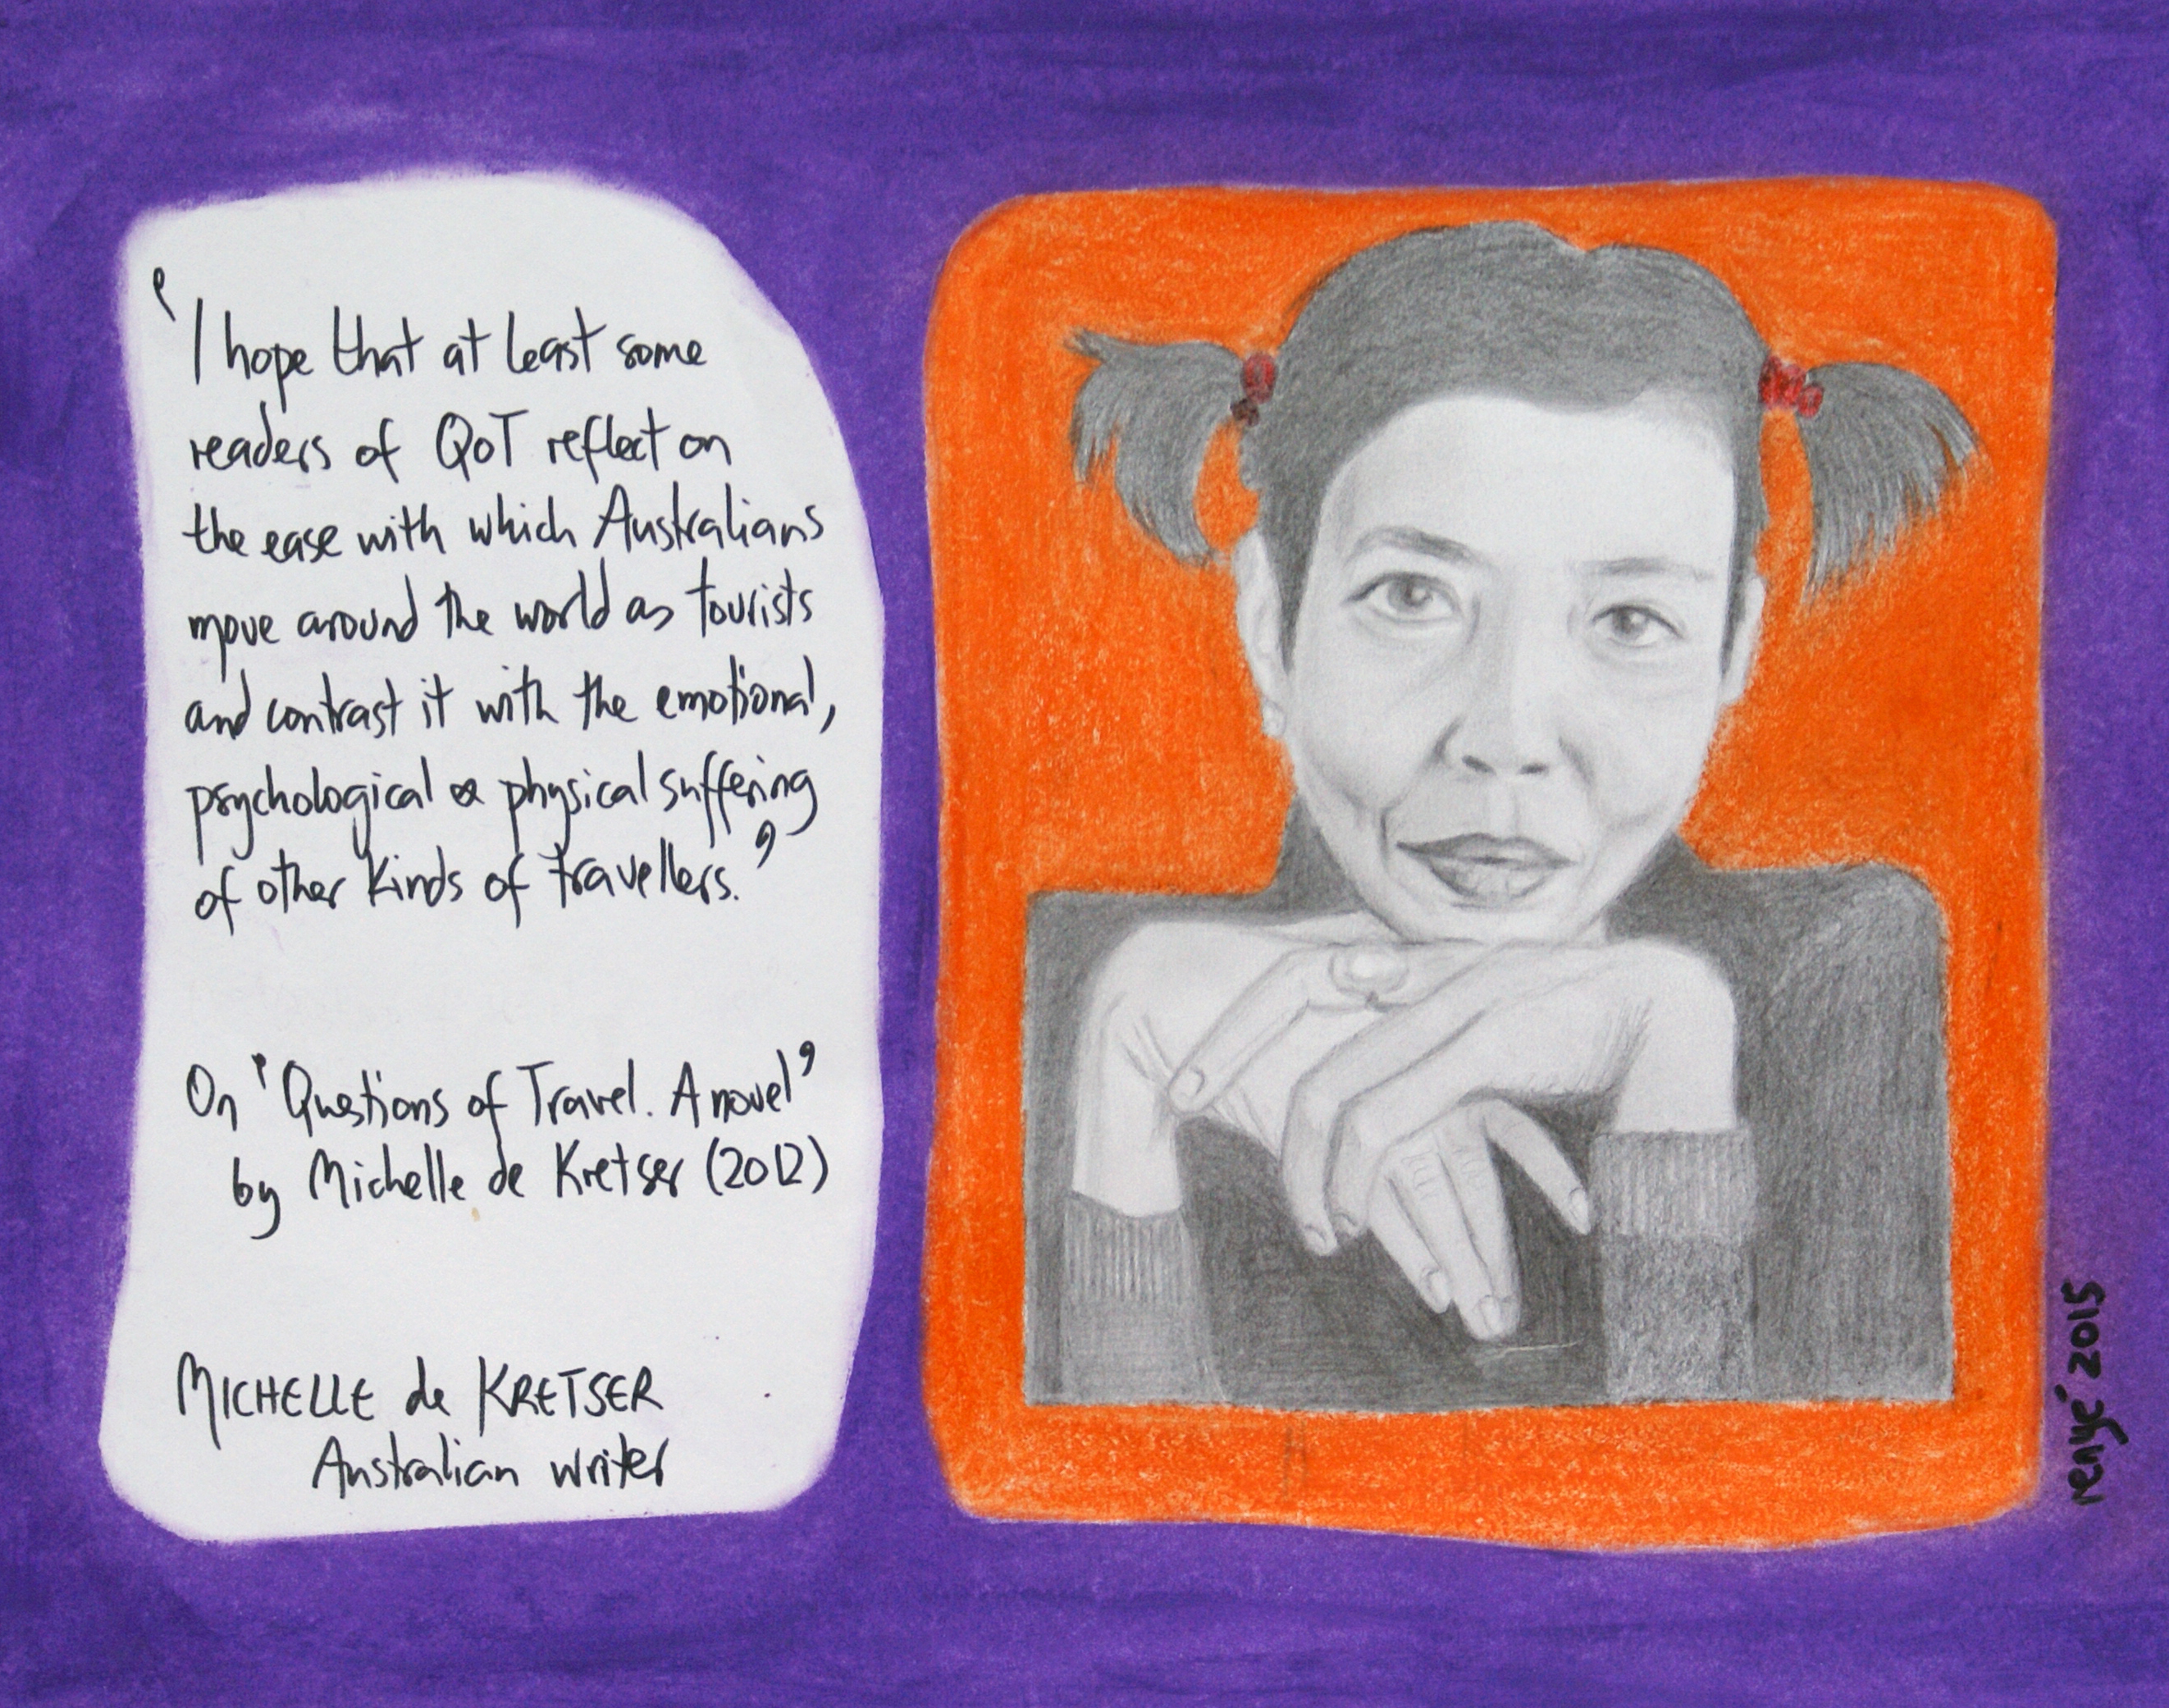 'I hope that at least some
readers of QoT reflect on
the ease with which Australians
move around the world as tourists
and contrast it with the emotional,
psychological & physical suffering
of other kinds of travellers.'
On 'Questions of Travel. A novel'
by Michelle de Kretser (2012)
MICHELLE de KRETSER
Australian writer
renyé 2015